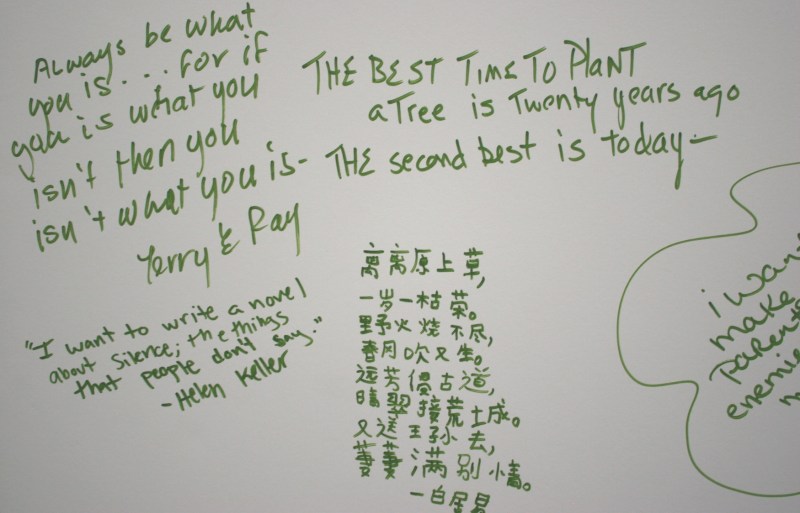 Always be what
you is... for if
you is what you
isn't then you
isn't what you is-
Terry & Ray
THE BEST TIME TO PLANT
a Tree is Twenty years ago
THE second best is today-
"I want to write a novel
about Silence; the things
that people don't say."
-Helen Keller
离离原上草,
一岁一枯荣。
野火烧不尽,
春月吹又生。
远芳侵古道,
晴翠接荒土成。
又送王孙去,
萋萋满别情。
一白居易
i wan
make
Parents
enemie